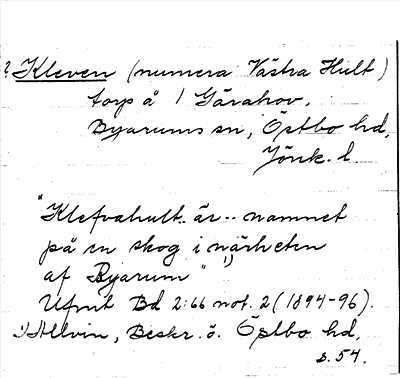 ? Kleven (numera Västra Hult)
torp å / Gärahov.
Byarums sn, Östbo hd,
Jönk. l.
"Klefvahult.. är.. namnet
på en skog i närheten
af Byarum" 1)
Ufmt Bd 2:66 not. 2 (1894-96).
1) Allvin, Beskr. ö. Östbo hd,
s. 54.